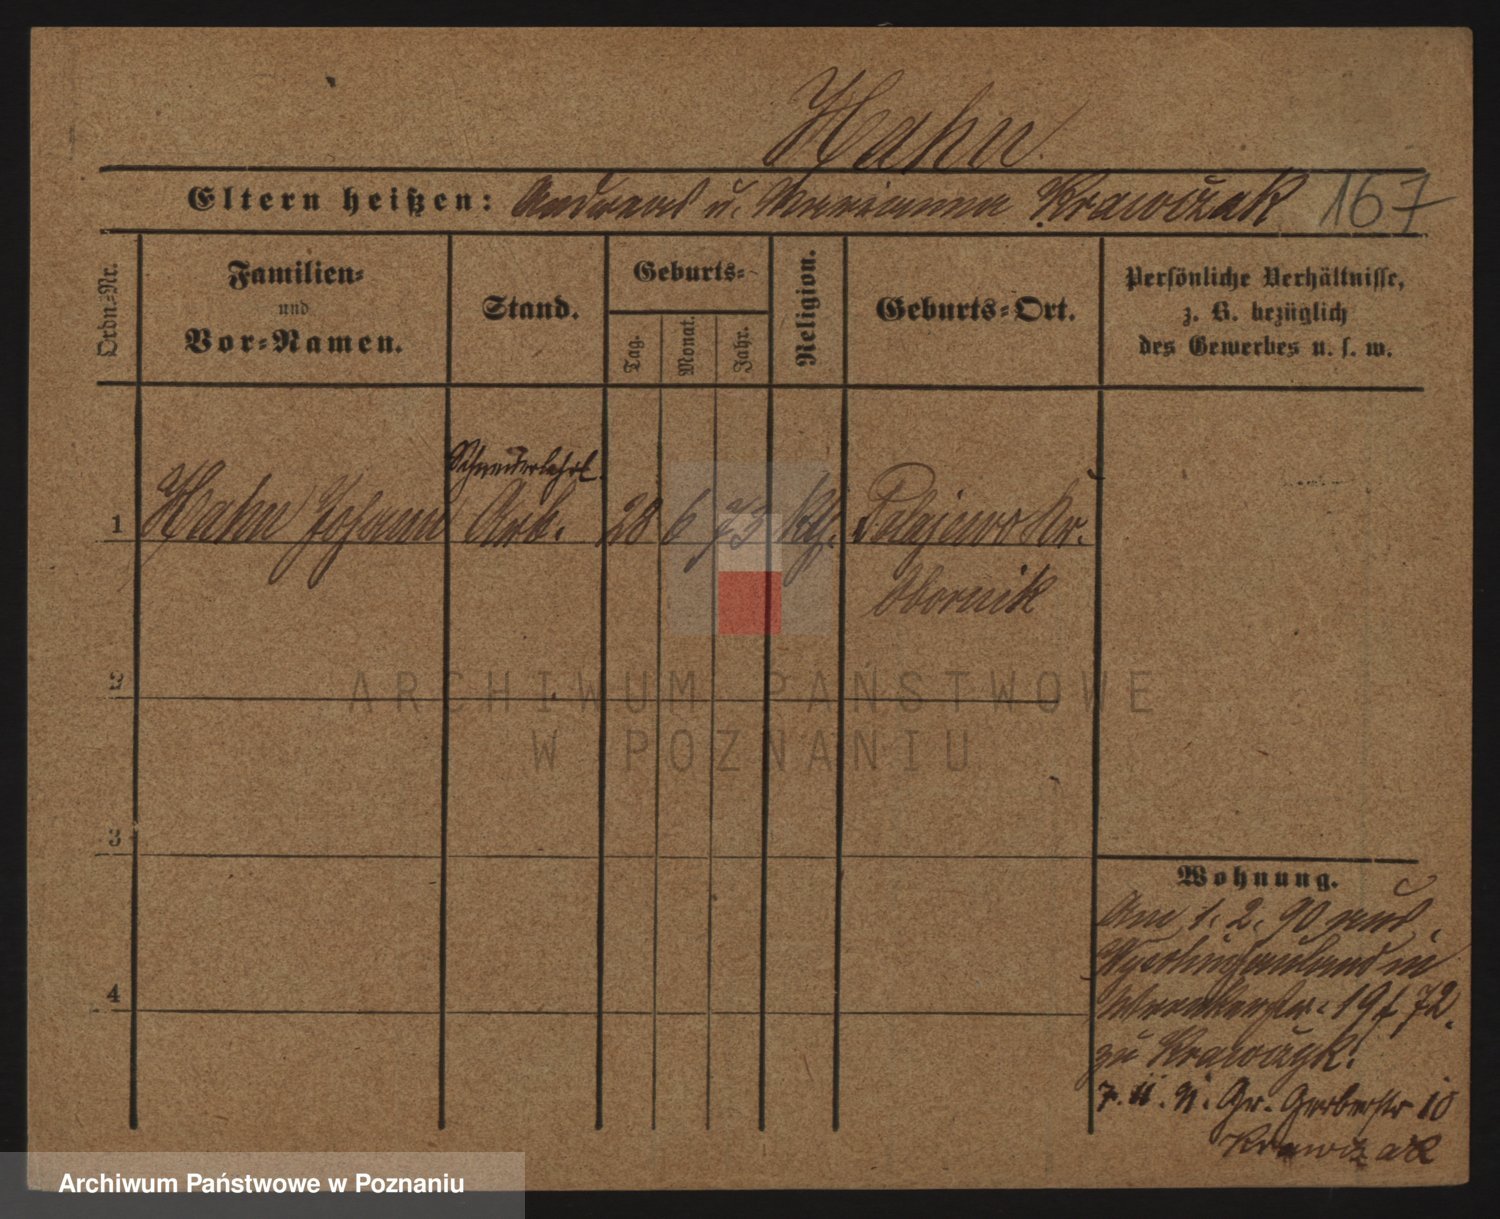 Hahn
Eltern heißen: Andreas u. Marianna Krawczak 167
Ordn.-Nr.
Familien-
und
Vor-Namen.
Stand.
Geburts-
Tag.
Monat.
Jahr.
Religion.
Geburts-Ort.
Persönliche Verhältnisse,
z. B. bezüglich
des Gewerbes u. s. w.
Schneiderlehrl.
1 Hahn Johann Arb. 28 6 73 kth. Polajewo Kr.
Obornik
2
3
4
Wohnung.
Am 1. 2. 90 aus
in
19 f 72.
zu Krawczyk.
7. 11. 91. Gr. Gerberstr 10
Krawczak
ARCHIWUM PAŃSTWOWE
W POZNANIU
Archiwum Państwowe w Poznaniu